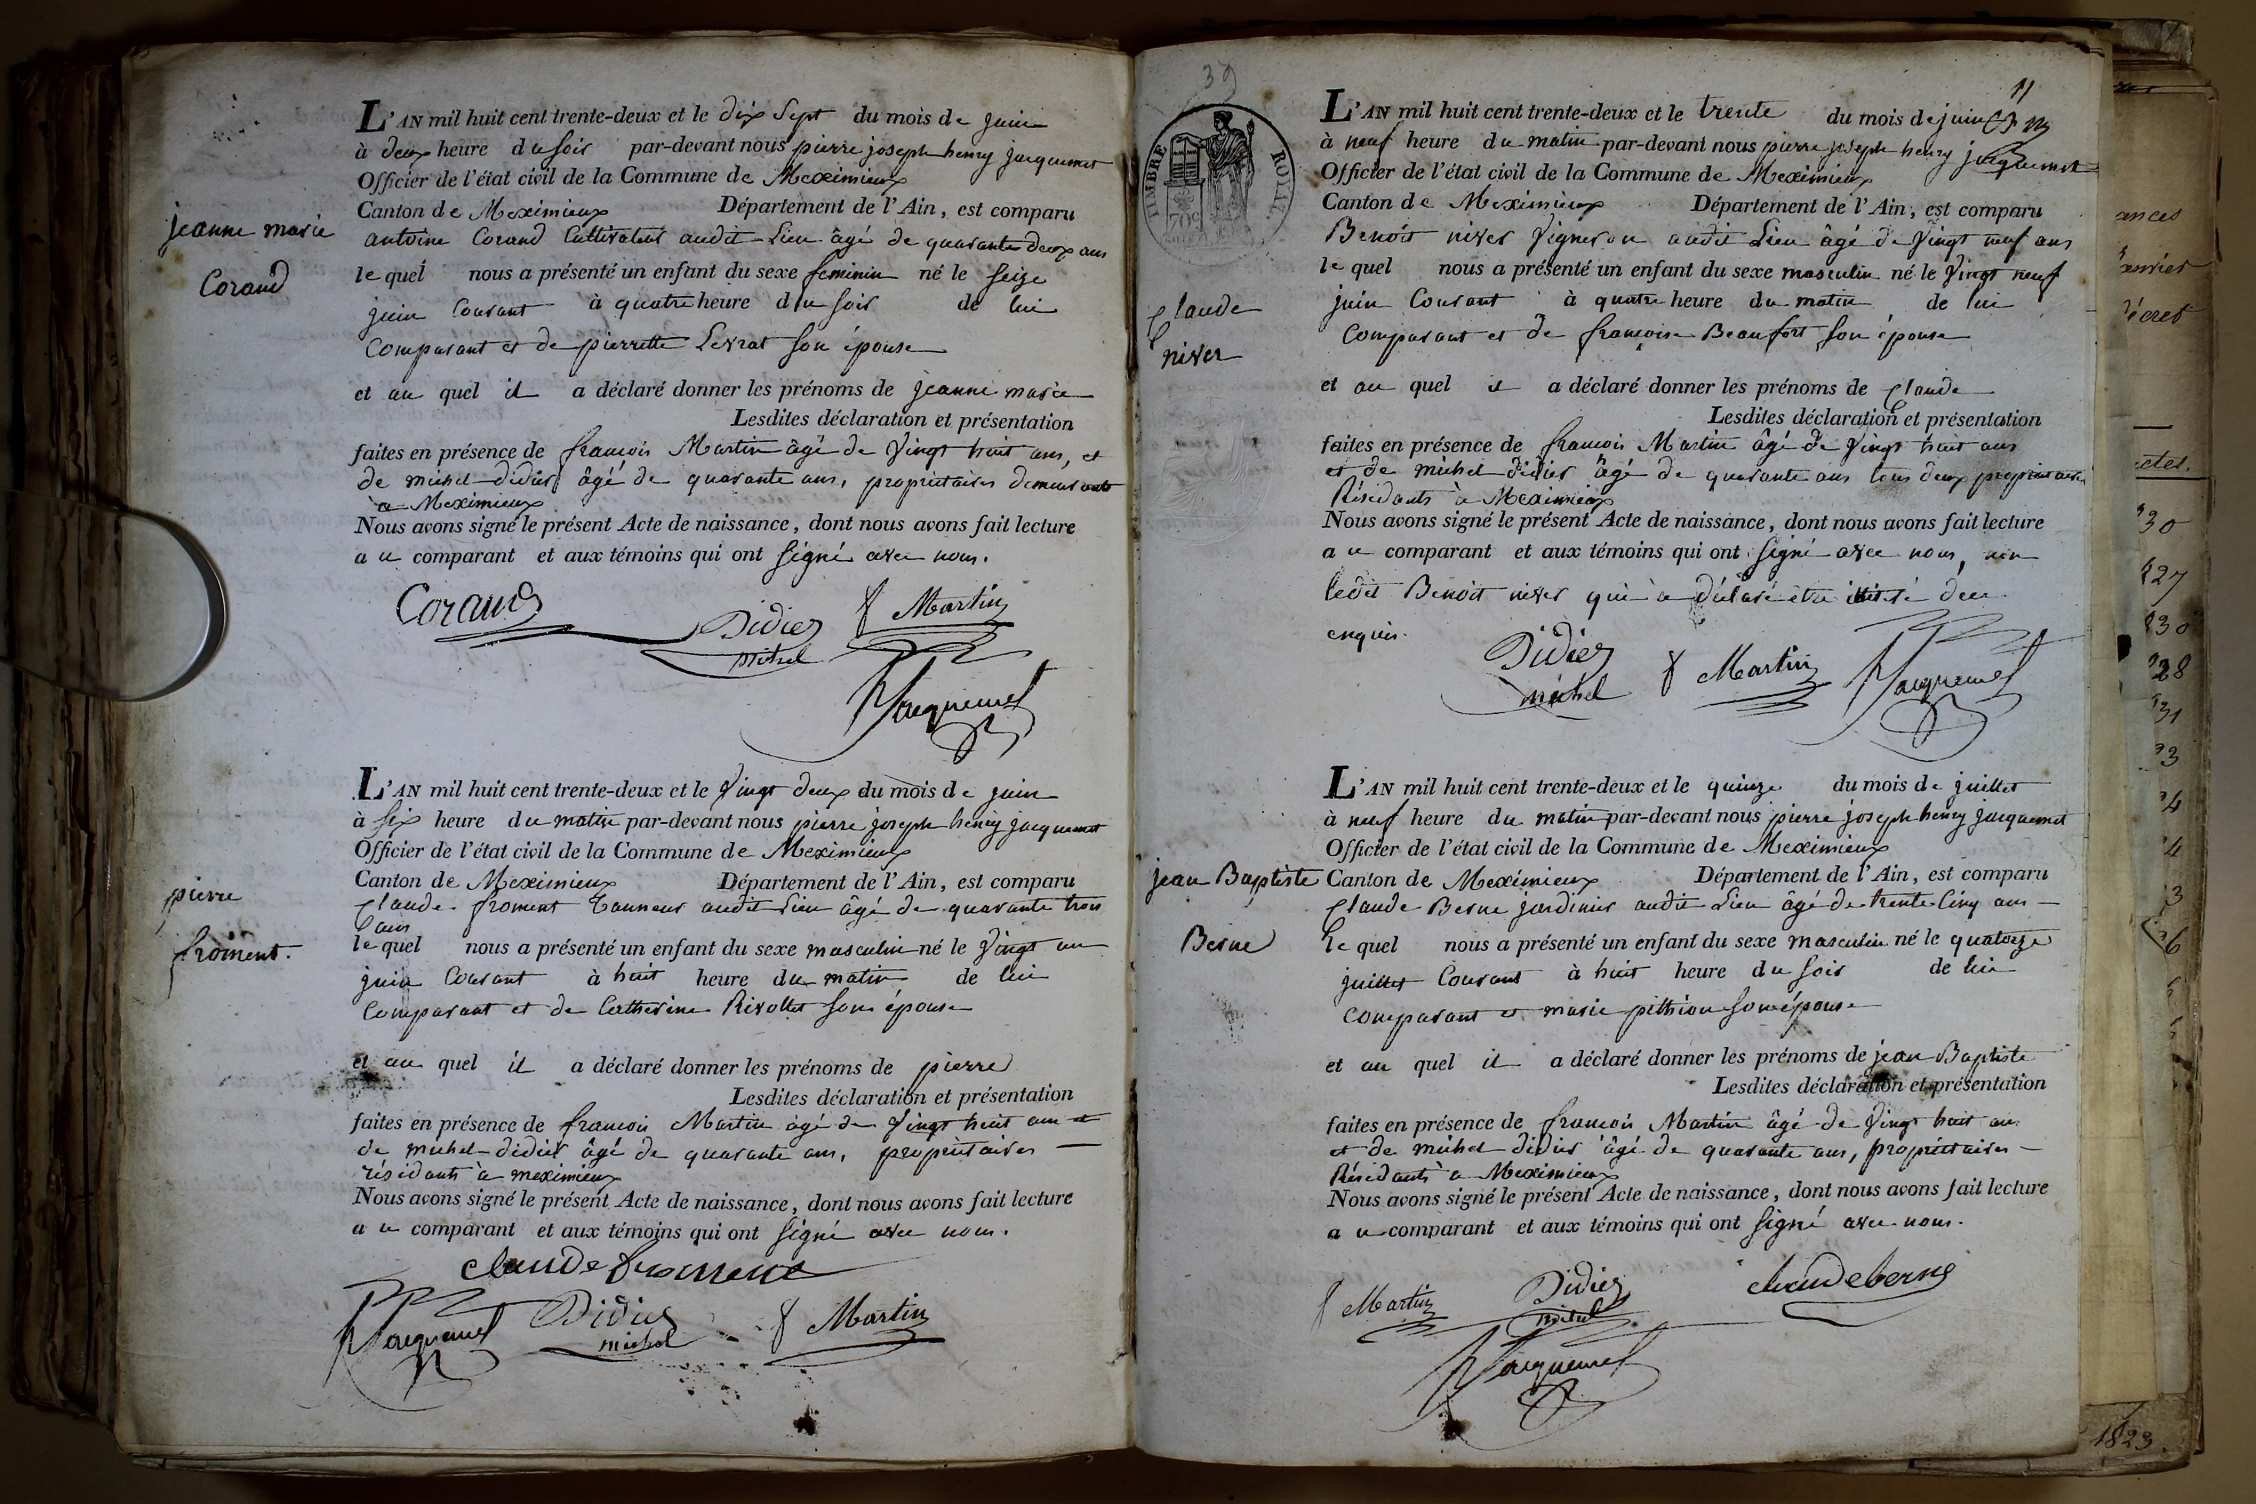 jeanne marie
Corand
L'AN mil huit cent trente-deux et le dix Sept du mois de juin
à deux heure du soir par-devant nous pierre joseph henry jacquemet
Officier de l'état civil de la Commune de Meximieux
Canton de Meximieux Département de l'Ain, est comparu
antoine Corand Cultivateur audit Lieu âgé de quarante deux ans
le quel nous a présenté un enfant du sexe feminin né le seize
juin Courant à quatre heure du soir de lui
Comparant et de pierrette Levrat son épouse
et au quel il a déclaré donner les prénoms de jeanne marie
Lesdites déclaration et présentation
faites en présence de françois Martin âgé de Vingt huit ans, et
de michel didier âgé de quarante ans, propriétaires demeurants
à Meximieux
Nous avons signé le présent Acte de naissance, dont nous avons fait lecture
au comparant et aux témoins qui ont signé avec nous.
Corand
Didier
michel
f Martin
Jacquemet
pierre
froment.
L'AN mil huit cent trente-deux et le Vingt deux du mois de juin
à six heure du matin par-devant nous pierre joseph henry jacquemet
Officier de l'état civil de la Commune de Meximieux
Canton de Meximieux Département de l'Ain, est comparu
Claude froment Tanneur audit Lieu âgé de quarante trois
ans
le quel nous a présenté un enfant du sexe masculin né le Vingt un
juin Courant à huit heure du matin de lui
Comparant et de Catherine Rivollet son épouse
et au quel il a déclaré donner les prénoms de pierre
Lesdites déclaration et présentation
faites en présence de françois Martin âgé de Vingt huit ans et
de michel didier âgé de quarante ans, propriétaires
résidants à meximieux
Nous avons signé le présent Acte de naissance, dont nous avons fait lecture
au comparant et aux témoins qui ont signé avec nous.
claude froment
Jacquemet
Didier
michel
f Martin
39
11
TIMBRE ROYAL
Claude
niver
L'AN mil huit cent trente-deux et le trente du mois de juin
à neuf heure du matin par-devant nous pierre joseph henry jacquemet
Officier de l'état civil de la Commune de Meximieux
Canton de Meximieux Département de l'Ain, est comparu
Benoit niver Vigneron audit Lieu âgé de Vingt neuf ans
le quel nous a présenté un enfant du sexe masculin né le Vingt neuf
juin Courant à quatre heure du matin de lui
Comparant et de françoise Beaufort son épouse
et au quel il a déclaré donner les prénoms de Claude
Lesdites déclaration et présentation
faites en présence de françois Martin âgé de Vingt huit ans
et de michel didier âgé de quarante ans tous deux propriétaires
Résidants à Meximieux
Nous avons signé le présent Acte de naissance, dont nous avons fait lecture
au comparant et aux témoins qui ont signé avec nous, non
ledit Benoit niver qui a déclaré être illitéré de ce
enquis.
Didier
michel
f Martin
Jacquemet
jean Baptiste
Berne
L'AN mil huit cent trente-deux et le quinze du mois de juillet
à neuf heure du matin par-devant nous pierre joseph henry jacquemet
Officier de l'état civil de la Commune de Meximieux
Canton de Meximieux Département de l'Ain, est comparu
Claude Berne jardinier audit Lieu âgé de trente Cinq ans
le quel nous a présenté un enfant du sexe masculin né le quatorze
juillet Courant à huit heure du soir de lui
comparant et marie pithion son épouse
et au quel il a déclaré donner les prénoms de jean Baptiste
Lesdites déclaration et présentation
faites en présence de françois Martin âgé de Vingt huit ans
et de michel didier âgé de quarante ans, propriétaires
Résidants à Meximieux
Nous avons signé le présent Acte de naissance, dont nous avons fait lecture
au comparant et aux témoins qui ont signé avec nous.
f Martin
Didier
michel
claude berne
Jacquemet
30
27
30
28
31
1823.